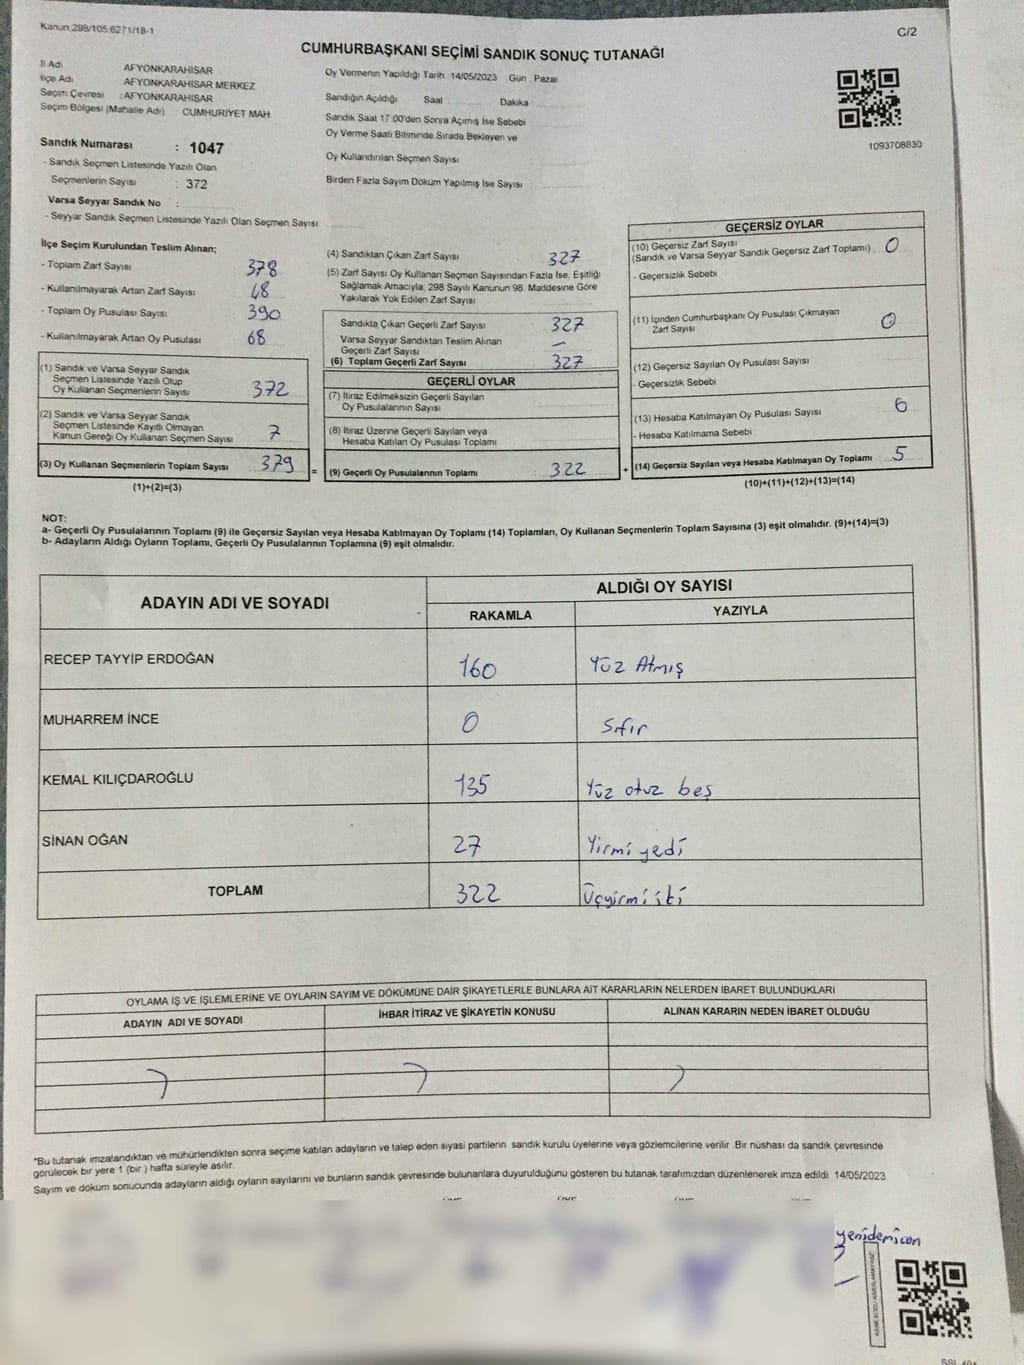 Kanun 298/105.62/1/18-1
C/2
CUMHURBAŞKANI SEÇİMİ SANDIK SONUÇ TUTANAĞI
İl Adı AFYONKARAHİSAR
İlçe Adı AFYONKARAHİSAR MERKEZ
Seçim Çevresi : AFYONKARAHİSAR
Seçim Bölgesi (Mahalle Adı) CUMHURİYET MAH
Oy Vermenin Yapıldığı Tarih 14/05/2023 Gün : Pazar
Sandığın Açıldığı Saat : Dakika
Sandık Saat 17:00'den Sonra Açılmış İse Sebebi
Oy Verme Saati Bitiminde Sırada Bekleyen ve
Oy Kullandırılan Seçmen Sayısı
Birden Fazla Sayım Döküm Yapılmış İse Sayısı
1093708830
Sandık Numarası : 1047
- Sandık Seçmen Listesinde Yazılı Olan
Seçmenlerin Sayısı : 372
Varsa Seyyar Sandık No :
- Seyyar Sandık Seçmen Listesinde Yazılı Olan Seçmen Sayısı
İlçe Seçim Kurulundan Teslim Alınan;
- Toplam Zarf Sayısı 378
- Kullanılmayarak Artan Zarf Sayısı 48
- Toplam Oy Pusulası Sayısı 390
- Kullanılmayarak Artan Oy Pusulası 68
(1) Sandık ve Varsa Seyyar Sandık
Seçmen Listesinde Yazılı Olup
Oy Kullanan Seçmenlerin Sayısı 372
(2) Sandık ve Varsa Seyyar Sandık
Seçmen Listesinde Kayıtlı Olmayan
Kanun Gereği Oy Kullanan Seçmen Sayısı 7
(3) Oy Kullanan Seçmenlerin Toplam Sayısı 379
(1)+(2)=(3)
(4) Sandıktan Çıkan Zarf Sayısı 327
(5) Zarf Sayısı Oy Kullanan Seçmen Sayısından Fazla İse, Eşitliği
Sağlamak Amacıyla; 298 Sayılı Kanunun 98. Maddesine Göre
Yakılarak Yok Edilen Zarf Sayısı
Sandıkta Çıkan Geçerli Zarf Sayısı 327
Varsa Seyyar Sandıktan Teslim Alınan
Geçerli Zarf Sayısı –
(6) Toplam Geçerli Zarf Sayısı 327
GEÇERLİ OYLAR
(7) İtiraz Edilmeksizin Geçerli Sayılan
Oy Pusulalarının Sayısı
(8) İtiraz Üzerine Geçerli Sayılan veya
Hesaba Katılan Oy Pusulası Toplamı
= (9) Geçerli Oy Pusulalarının Toplamı 322 +
GEÇERSİZ OYLAR
(10) Geçersiz Zarf Sayısı
(Sandık ve Varsa Seyyar Sandık Geçersiz Zarf Toplamı) 0
- Geçersizlik Sebebi
(11) İçinden Cumhurbaşkanı Oy Pusulası Çıkmayan
Zarf Sayısı 0
(12) Geçersiz Sayılan Oy Pusulası Sayısı
- Geçersizlik Sebebi
(13) Hesaba Katılmayan Oy Pusulası Sayısı 6
- Hesaba Katılmama Sebebi
(14) Geçersiz Sayılan veya Hesaba Katılmayan Oy Toplamı 5
(10)+(11)+(12)+(13)=(14)
NOT:
a- Geçerli Oy Pusulalarının Toplamı (9) ile Geçersiz Sayılan veya Hesaba Katılmayan Oy Toplamı (14) Toplamları, Oy Kullanan Seçmenlerin Toplam Sayısına (3) eşit olmalıdır. (9)+(14)=(3)
b- Adayların Aldığı Oyların Toplamı, Geçerli Oy Pusulalarının Toplamına (9) eşit olmalıdır.
ADAYIN ADI VE SOYADI
ALDIĞI OY SAYISI
RAKAMLA YAZIYLA
RECEP TAYYİP ERDOĞAN 160 Yüz Atmış
MUHARREM İNCE 0 Sıfır
KEMAL KILIÇDAROĞLU 135 Yüz otuz beş
SİNAN OĞAN 27 Yirmi yedi
TOPLAM 322 Üçyirmi iki
OYLAMA İŞ VE İŞLEMLERİNE VE OYLARIN SAYIM VE DÖKÜMÜNE DAİR ŞİKAYETLERLE BUNLARA AİT KARARLARIN NELERDEN İBARET BULUNDUKLARI
ADAYIN ADI VE SOYADI İHBAR İTİRAZ VE ŞİKAYETİN KONUSU ALINAN KARARIN NEDEN İBARET OLDUĞU
*Bu tutanak imzalandıktan ve mühürlendikten sonra seçime katılan adayların ve talep eden siyasi partilerin sandık kurulu üyelerine veya gözlemcilerine verilir. Bir nüshası da sandık çevresinde
görülecek bir yere 1 (bir) hafta süreyle asılır.
Sayım ve döküm sonucunda adayların aldığı oyların sayılarını ve bunların sandık çevresinde bulunanlara duyurulduğunu gösteren bu tutanak tarafımızdan düzenlenerek imza edildi 14/05/2023